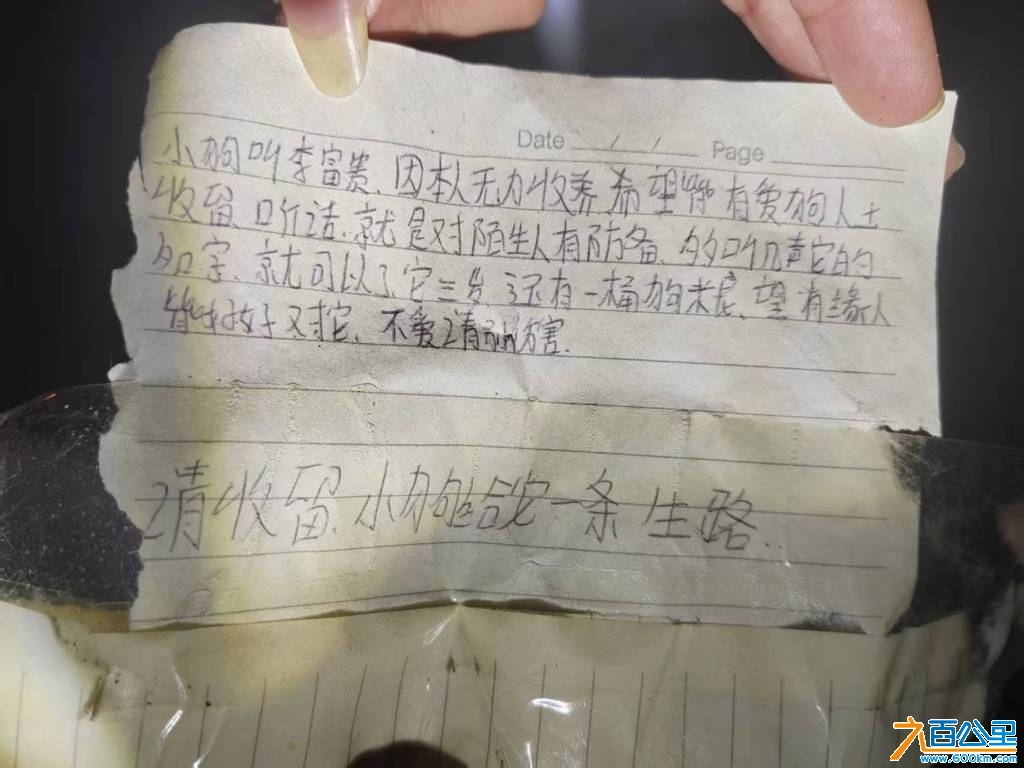 Date / / Page
小狗叫李富贵、因本人无力收养、希望能有爱狗人士
收留 听话、就是对陌生人有防备、多叫几声它的
名字、就可以了它三岁、还有一桶狗米尼、望有缘人
能好好对它、不爱请别伤害.
请收留、小狗给它一条生路..
九百公里
www.600km.com